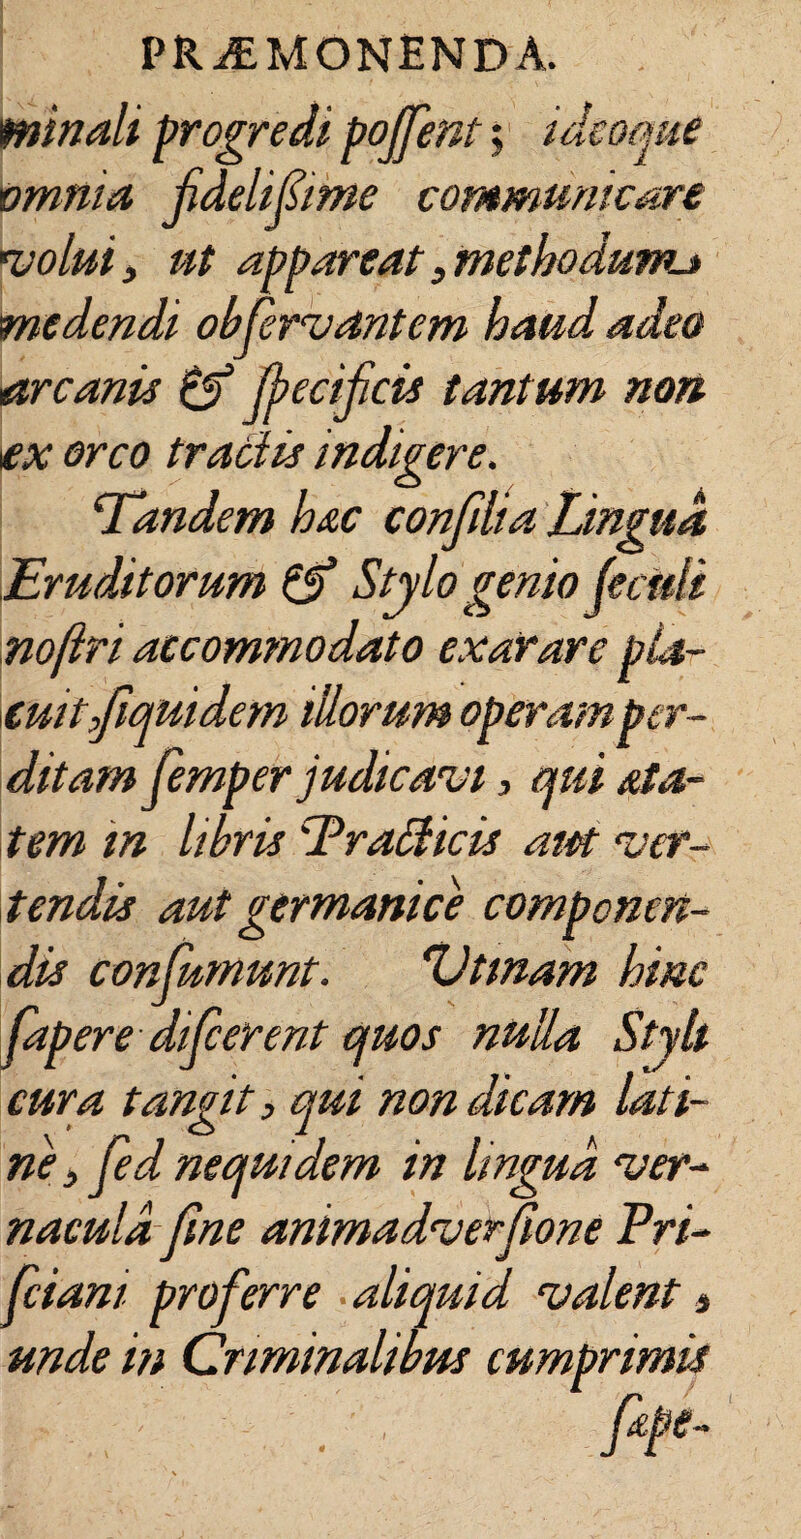 PRÆMONENDA.
minali progredi poſſent; ideoque
omnia fideliſſime communicare
volui, ut appareat, methodum
medendi obſervantem haud adeo
arcanis & ſpecificis tantum non
ex orco tractis indigere.
Tandem hæc conſilia Linguâ
Eruditorum & Stylo genio ſeculi
noſtri accommodato exarare pla-
cuit, ſiquidem illorum operam per-
ditam ſemper judicavi, qui æta-
tem in libris Practicis aut ver-
tendis aut germanicè componen-
dis conſumunt. Utinam hinc
ſapere diſcerent quos nulla Styli
cura tangit, qui non dicam lati-
nè, ſed nequidem in linguâ ver-
naculâ ſine animadverſione Pri-
ſciani proferre aliquid valent,
unde in Criminalibus cumprimis
ſæpe-